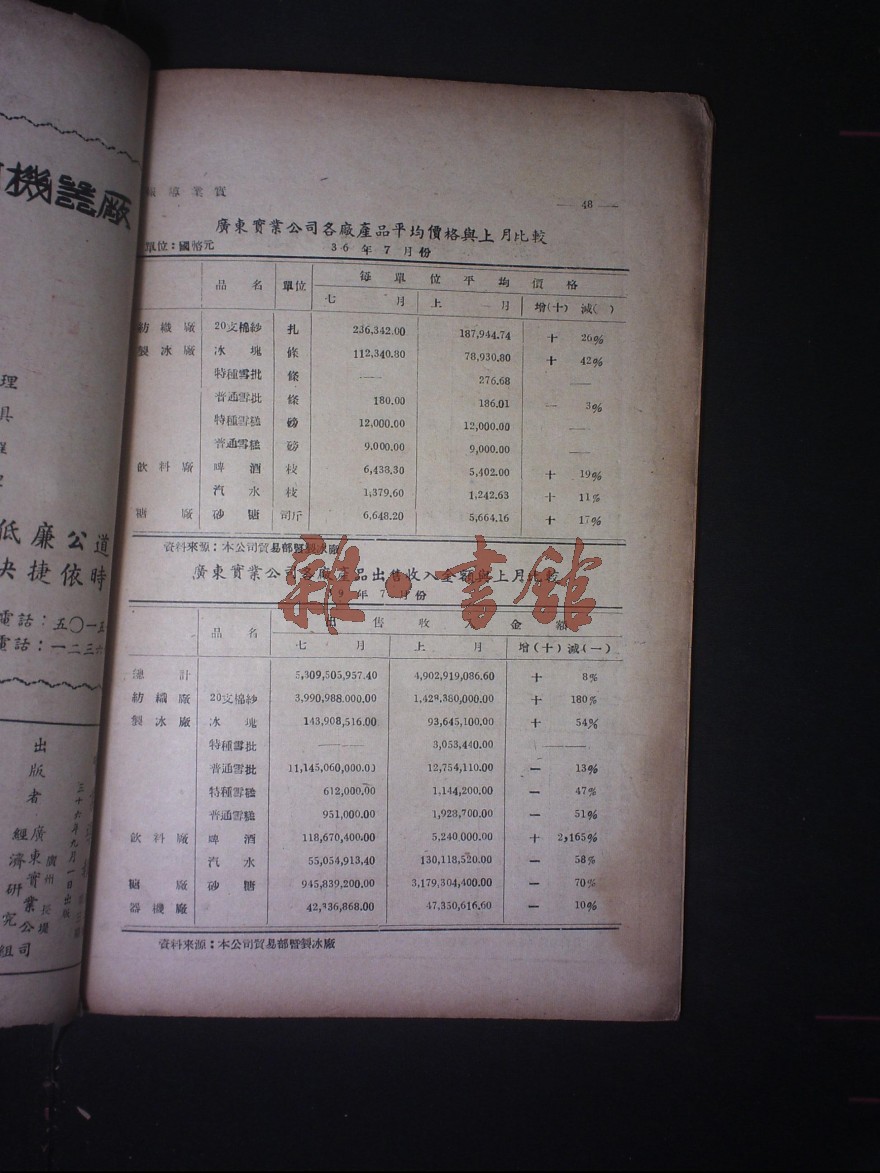 機器廠
理
具
低廉公道
快捷依時
電話：五〇一五
電話：一二三六
出版者
廣東實業公司
經濟研究組
廣州長堤
三十六年九月一日出版
實業導報
— 48 —
廣東實業公司各廠產品平均價格與上月比較
單位：國幣元 36年7月份
品名 單位 每單位平均價格
七月 上月 增(十) 減( )
紡織廠 20支棉紗 扎 236,342.00 187,944.74 十 26%
製冰廠 冰塊 條 112,340.80 78,930.80 十 42%
特種雪批 條 —— 276.68 ——
普通雪批 條 180.00 186.01 — 3%
特種雪糕 磅 12,000.00 12,000.00 ——
普通雪糕 磅 9,000.00 9,000.00 ——
飲料廠 啤酒 枝 6,438.30 5,402.00 十 19%
汽水 枝 1,379.60 1,242.63 十 11%
糖廠 砂糖 司斤 6,648.20 5,664.16 十 17%
資料來源：本公司貿易部暨製冰廠
廣東實業公司各廠產品出售收入金額與上月比較
年7月份
雜·書館
品名 出售收入金額
七月 上月 增(十)減(一)
總計 5,309,505,957.40 4,902,919,086.60 十 8%
紡織廠 20支棉紗 3,990,988.000.00 1,428,380,000.00 十 180%
製冰廠 冰塊 143,908,516.00 93,645,100.00 十 54%
特種雪批 —— 3,053,440.00 ——
普通雪批 11,145,060,000.00 12,754,110.00 — 13%
特種雪糕 612,000,00 1,144,200.00 — 47%
普通雪糕 951,000.00 1,928,700.00 — 51%
飲料廠 啤酒 118,670,400.00 5,240,000.00 十 2,165%
汽水 55,054,913,40 130,118,520.00 — 58%
糖廠 砂糖 945,839,200.00 3,179,304,400.00 — 70%
器機廠 42,336,868.00 47,350,616.60 — 10%
資料來源：本公司貿易部暨製冰廠